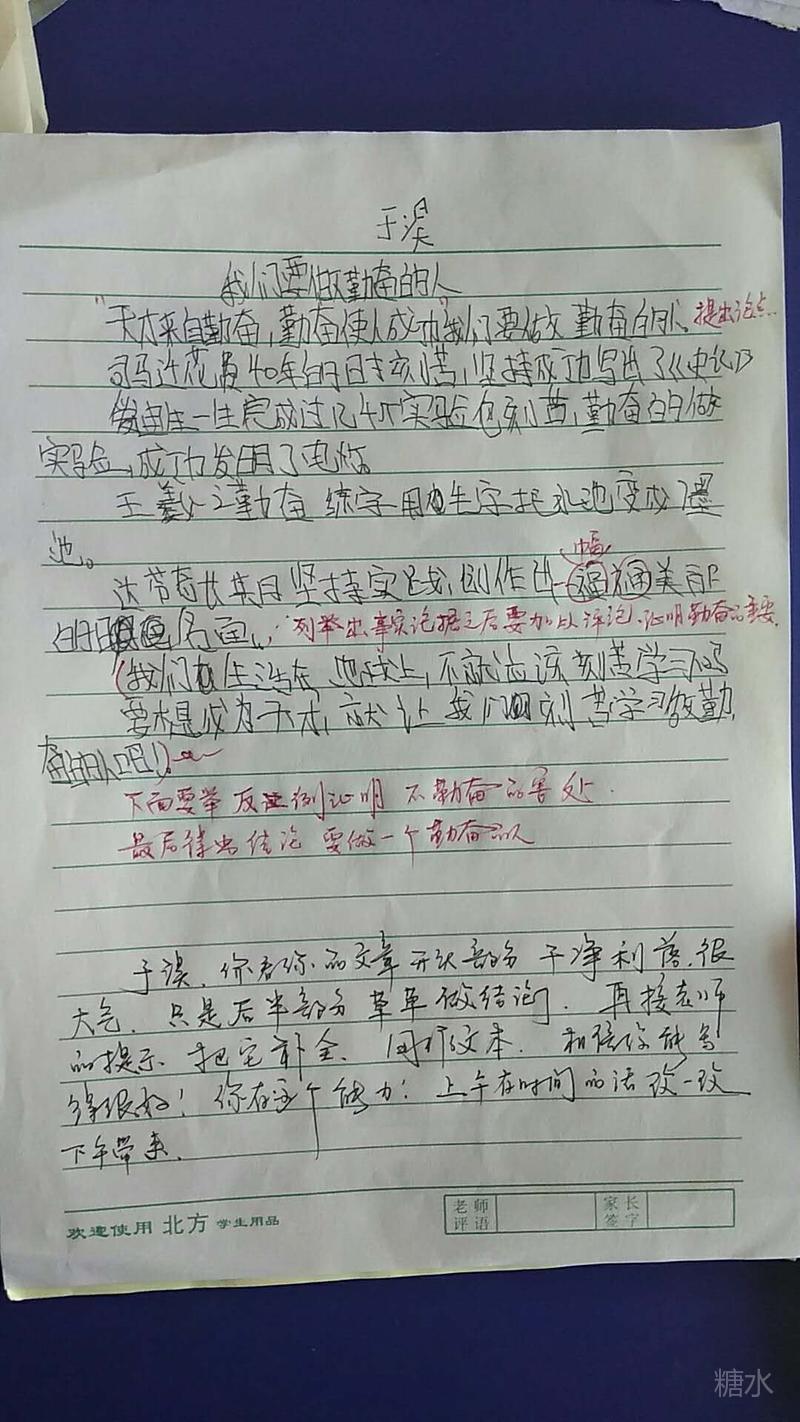 于淏
我们要做勤奋的人
"天才来自勤奋,勤奋使人成功"我们要做勤奋的人。提出论点.
司马迁花费40年的日子刻苦,坚持成功写出了《史记》
生一生完成过几千次实验也刻苦,勤奋的做
实验,成功发明了电灯。
王羲之勤奋练字用 生字把水池变成了墨
池。
达芬奇长年 坚持实践,创作出一 幅 美丽
的 名画。列举出事实论据之后要加以评论.证明勤奋的重要.
(我们 生活在 地球上,不就应该刻苦学习吗
要想成为天才,就让我们 刻苦学习做勤
奋的人吧!)
下面要举反 例证明 不勤奋的害处.
最后得出结论 要做一个勤奋的人
于淏,你看你的文章开头部分干净利落.很
大气.只是后半部分草草做结论了.再按老师
的提示 把它补全. 用作文本. 相信你能写
得很好!你有这个能力!上午有时间的话改一改
下午带来.
欢迎使用 北方 学生用品
老师评语
家长签字
糖水